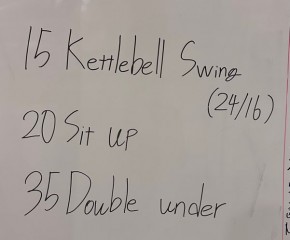 15 Kettlebell Swing
(24/16)
20 Sit up
35 Double under